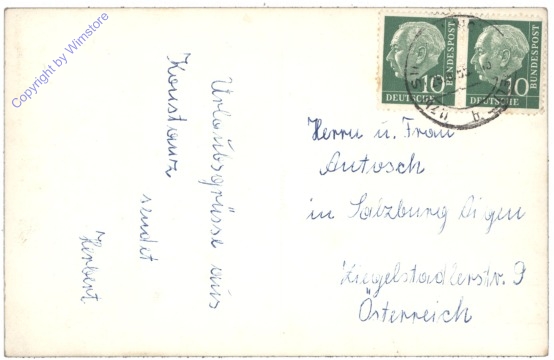 Copyright by Wimstore
Urlaubsgrüsse aus
Konstanz
sendet
Herbert
10
DEUTSCHE
BUNDESPOST
10
DEUTSCHE
BUNDESPOST
Herrn u. Frau
Autosch
in Salzburg Aigen
Ziegelstadlerstr. 9
Österreich